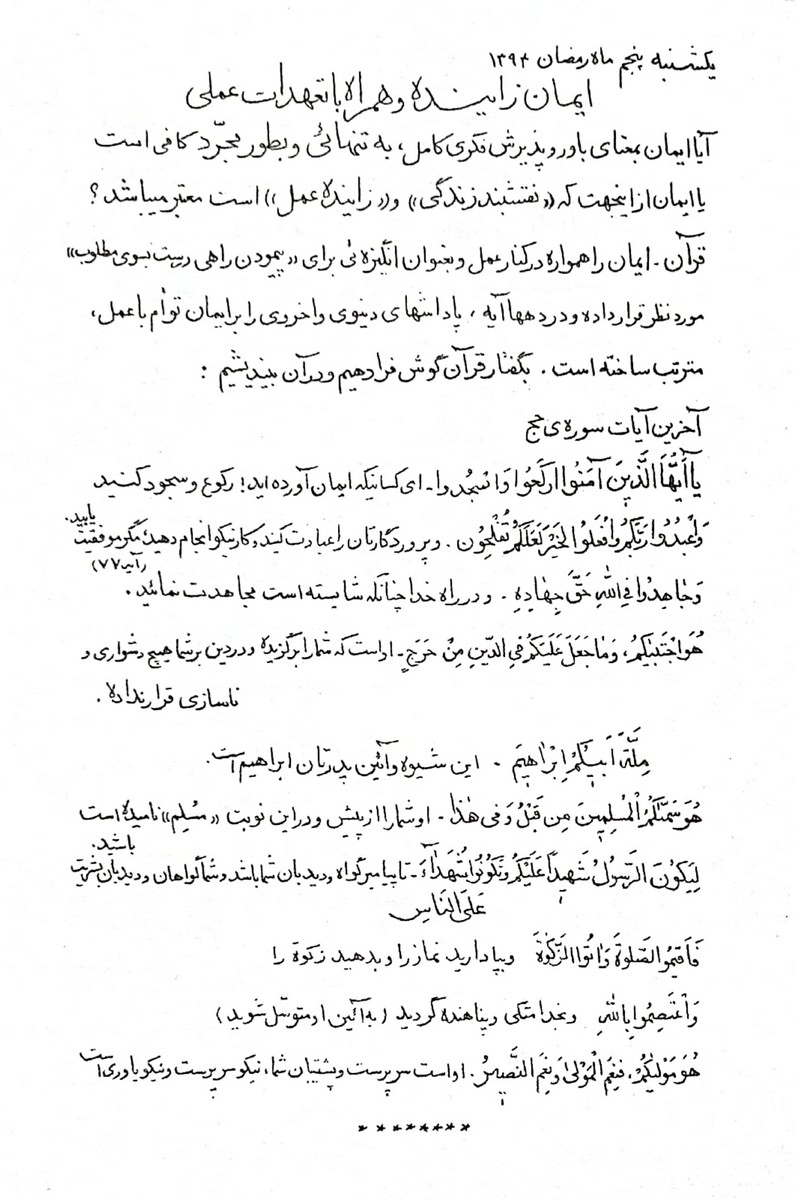 یکشنبه پنجم ماه رمضان ۱۳۹۴
ایمان زاینده و همراه با تعهدات عملی
آیا ایمان بمعنای باور و پذیرش فکری کامل، به تنهائی و بطور مجرّد کافی است
یا ایمان از اینجهت که «نقشبند زندگی» و «زایندهٔ عمل» است معتبر میباشد؟
قرآن ـ ایمان را همواره در کنار عمل و بعنوان انگیزه ئی برای «پیمودن راهی راست بسوی مطلوب»
مورد نظر قرار داده و در دهها آیه، پاداشهای دینوی و اخروی را بر ایمان توأم با عمل،
مترتب ساخته است. بگفتار قرآن گوش فرا دهیم و در آن بیندیشیم :
آخرین آیات سوره ی حج
یا أَیُّهَا الَّذینَ آمَنُوا ارکَعُوا وَاسْجُدوا ـ ای کسانیکه ایمان آورده اید! رکوع و سجود کنید
وَاعْبُدُوا رَبَّکُم وَافْعَلُوا الخَیْرَ لَعَلَّکُم تُفْلِحُون . و پروردگارتان را عبادت کنید و کار نیکو انجام دهید، مگر موفقیت یابید.
(آیه ۷۷)
وَجاهِدُوا فِی اللهِ حَقَّ جِهادِهِ . و در راه خدا چنانکه شایسته است مجاهدت نمائید .
هُوَ اجْتَبیٰکُم، وَما جَعَلَ عَلَیْکُم فِی الدّینِ مِنْ حَرَجٍ ـ او است که شما را برگزیده و در دین بر شما هیچ دشواری و
ناسازی قرار نداده .
مِلَّةَ اَبیکُمْ اِبْراهیمَ . این شیوه و آئین پدرتان ابراهیم است.
هُوَ سَمّیٰکُمُ الْمُسْلِمینَ مِن قَبْلُ وَ فی هٰذا ـ او شما را از پیش و در این نوبت «مُسلِم» نامیده است
لِیَکُونَ الرَّسُولُ شَهیداً عَلَیْکُم وَتَکُونُوا شُهَداٰءَ ـ تا پیامبر گواه و دیدبان شما باشد و شما گواهان و دیدبان بشریت باشید.
عَلَی النّاسِ
فَاَقیمُوا الصَّلوةَ وَاٰتُوا الزَّکٰوةَ وبپا دارید نماز را و بدهید زکوة را
وَاعْتَصِمُوا بِاللهِ وبخدا متکی و پناهنده گردید (به آئین او متوسّل شوید)
هُوَ مَوْلیٰکُمْ، فَنِعْمَ الْمَولیٰ وَنِعْمَ النَّصیرُ . او است سرپرست و پشتیبان شما، نیکو سرپرست و نیکو یاوری است
* * * * * * * *